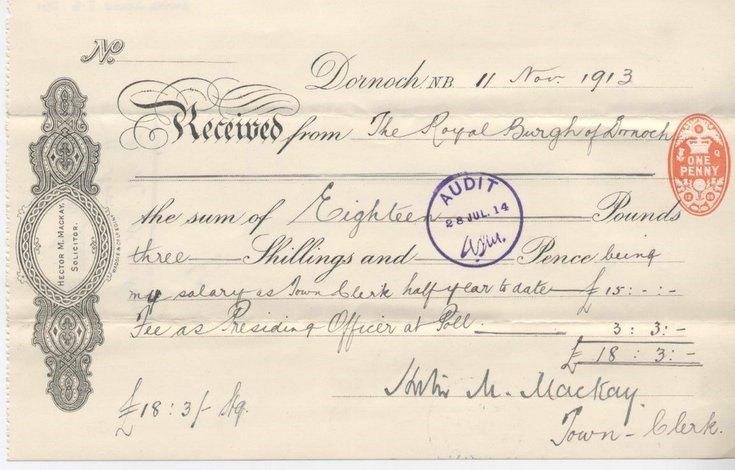 No.
Dornoch N.B. 11 Nov. 1913
Received from The Royal Burgh of Dornoch
ONE PENNY
AUDIT
28 JUL. 14
the sum of Eighteen Pounds
three Shillings and Pence being
my salary as Town Clerk half year to date £15 : - : -
Fee as Presiding Officer at Poll : 3 : 3 : -
£ 18 : 3 : -
M. Mackay.
£18 : 3/- Stg.
Town - Clerk.
HECTOR M. MACKAY,
SOLICITOR.